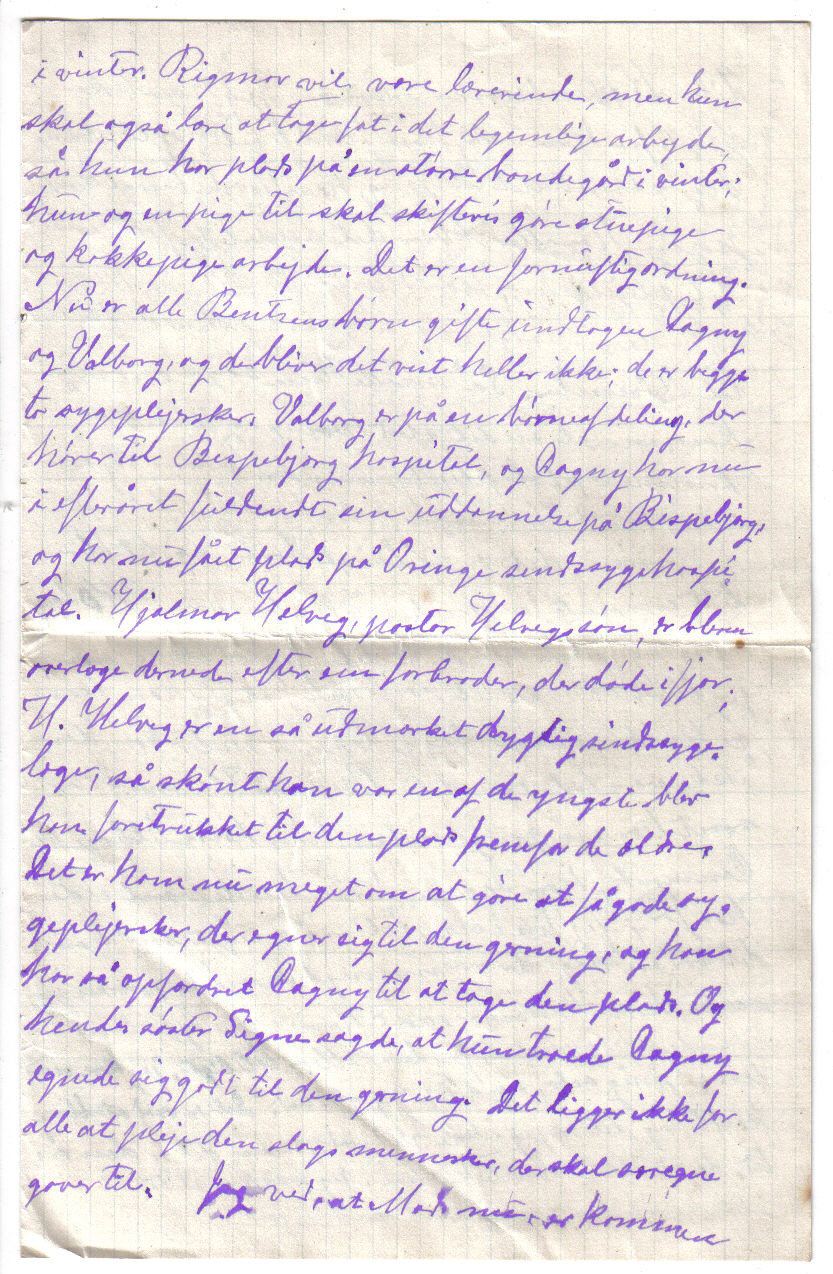 i vinter. Rigmor vil være lærerinde, men hun
skal også lære at tage fat i det legemlige arbejde,
så hun har plads på en større bondegård i vinter;
hun og en pige til skal skiftevis göre stuepige
og kokkepige arbejde. Det er en fornuftig ordning.
Nu er alle Bentsens børn gifte undtagen Dagny
og Valborg, og de bliver det vist heller ikke; de er begge
to sygeplejersker. Valborg er på en börneafdeling, der
hörer til Bispebjerg hospital, og Dagny har nu
i efteråret fuldendt sin uddannelse på Bispebjerg,
og har nu fået plads på Oringe sindssygehospi-
tal. Hjalmar Helveg, pastor Helvegs sön, er bleven
overlæge dernede efter sin forbroder, der döde i fjor;
H. Helveg er en så udmærket dygtig sindssyge-
læge, så skönt han var en af de yngste blev
han foretrukket til den plads fremfor de ældre.
Det er ham nu meget om at göre at få gode sy-
geplejersker, der egner sig til den gerning, og han
har så opfordret Dagny til at tage den plads. Og
hendes söster Signe sagde, at hun troede Dagny
egnede sig godt til den gerning. Det ligger ikke for
alle at pleje den slags mennesker, der skal særegne
gaver til. Jeg ved, at Mads nu er kommen